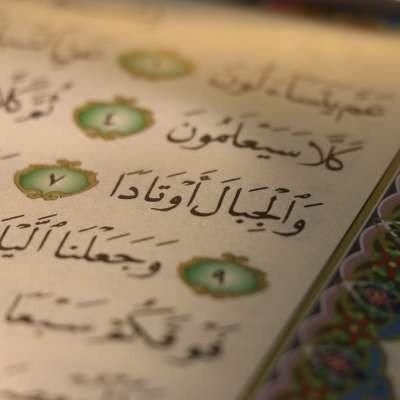 عَمَّ يَتَسَاءَلُونَ ١ عَنِ
كَلَّا سَيَعْلَمُونَ ٤ ثُمَّ كَلَّا
وَٱلْجِبَالَ أَوْتَادًا ٧
٩ وَجَعَلْنَا ٱلَّيْ
فَوْقَكُمْ سَبْعًا